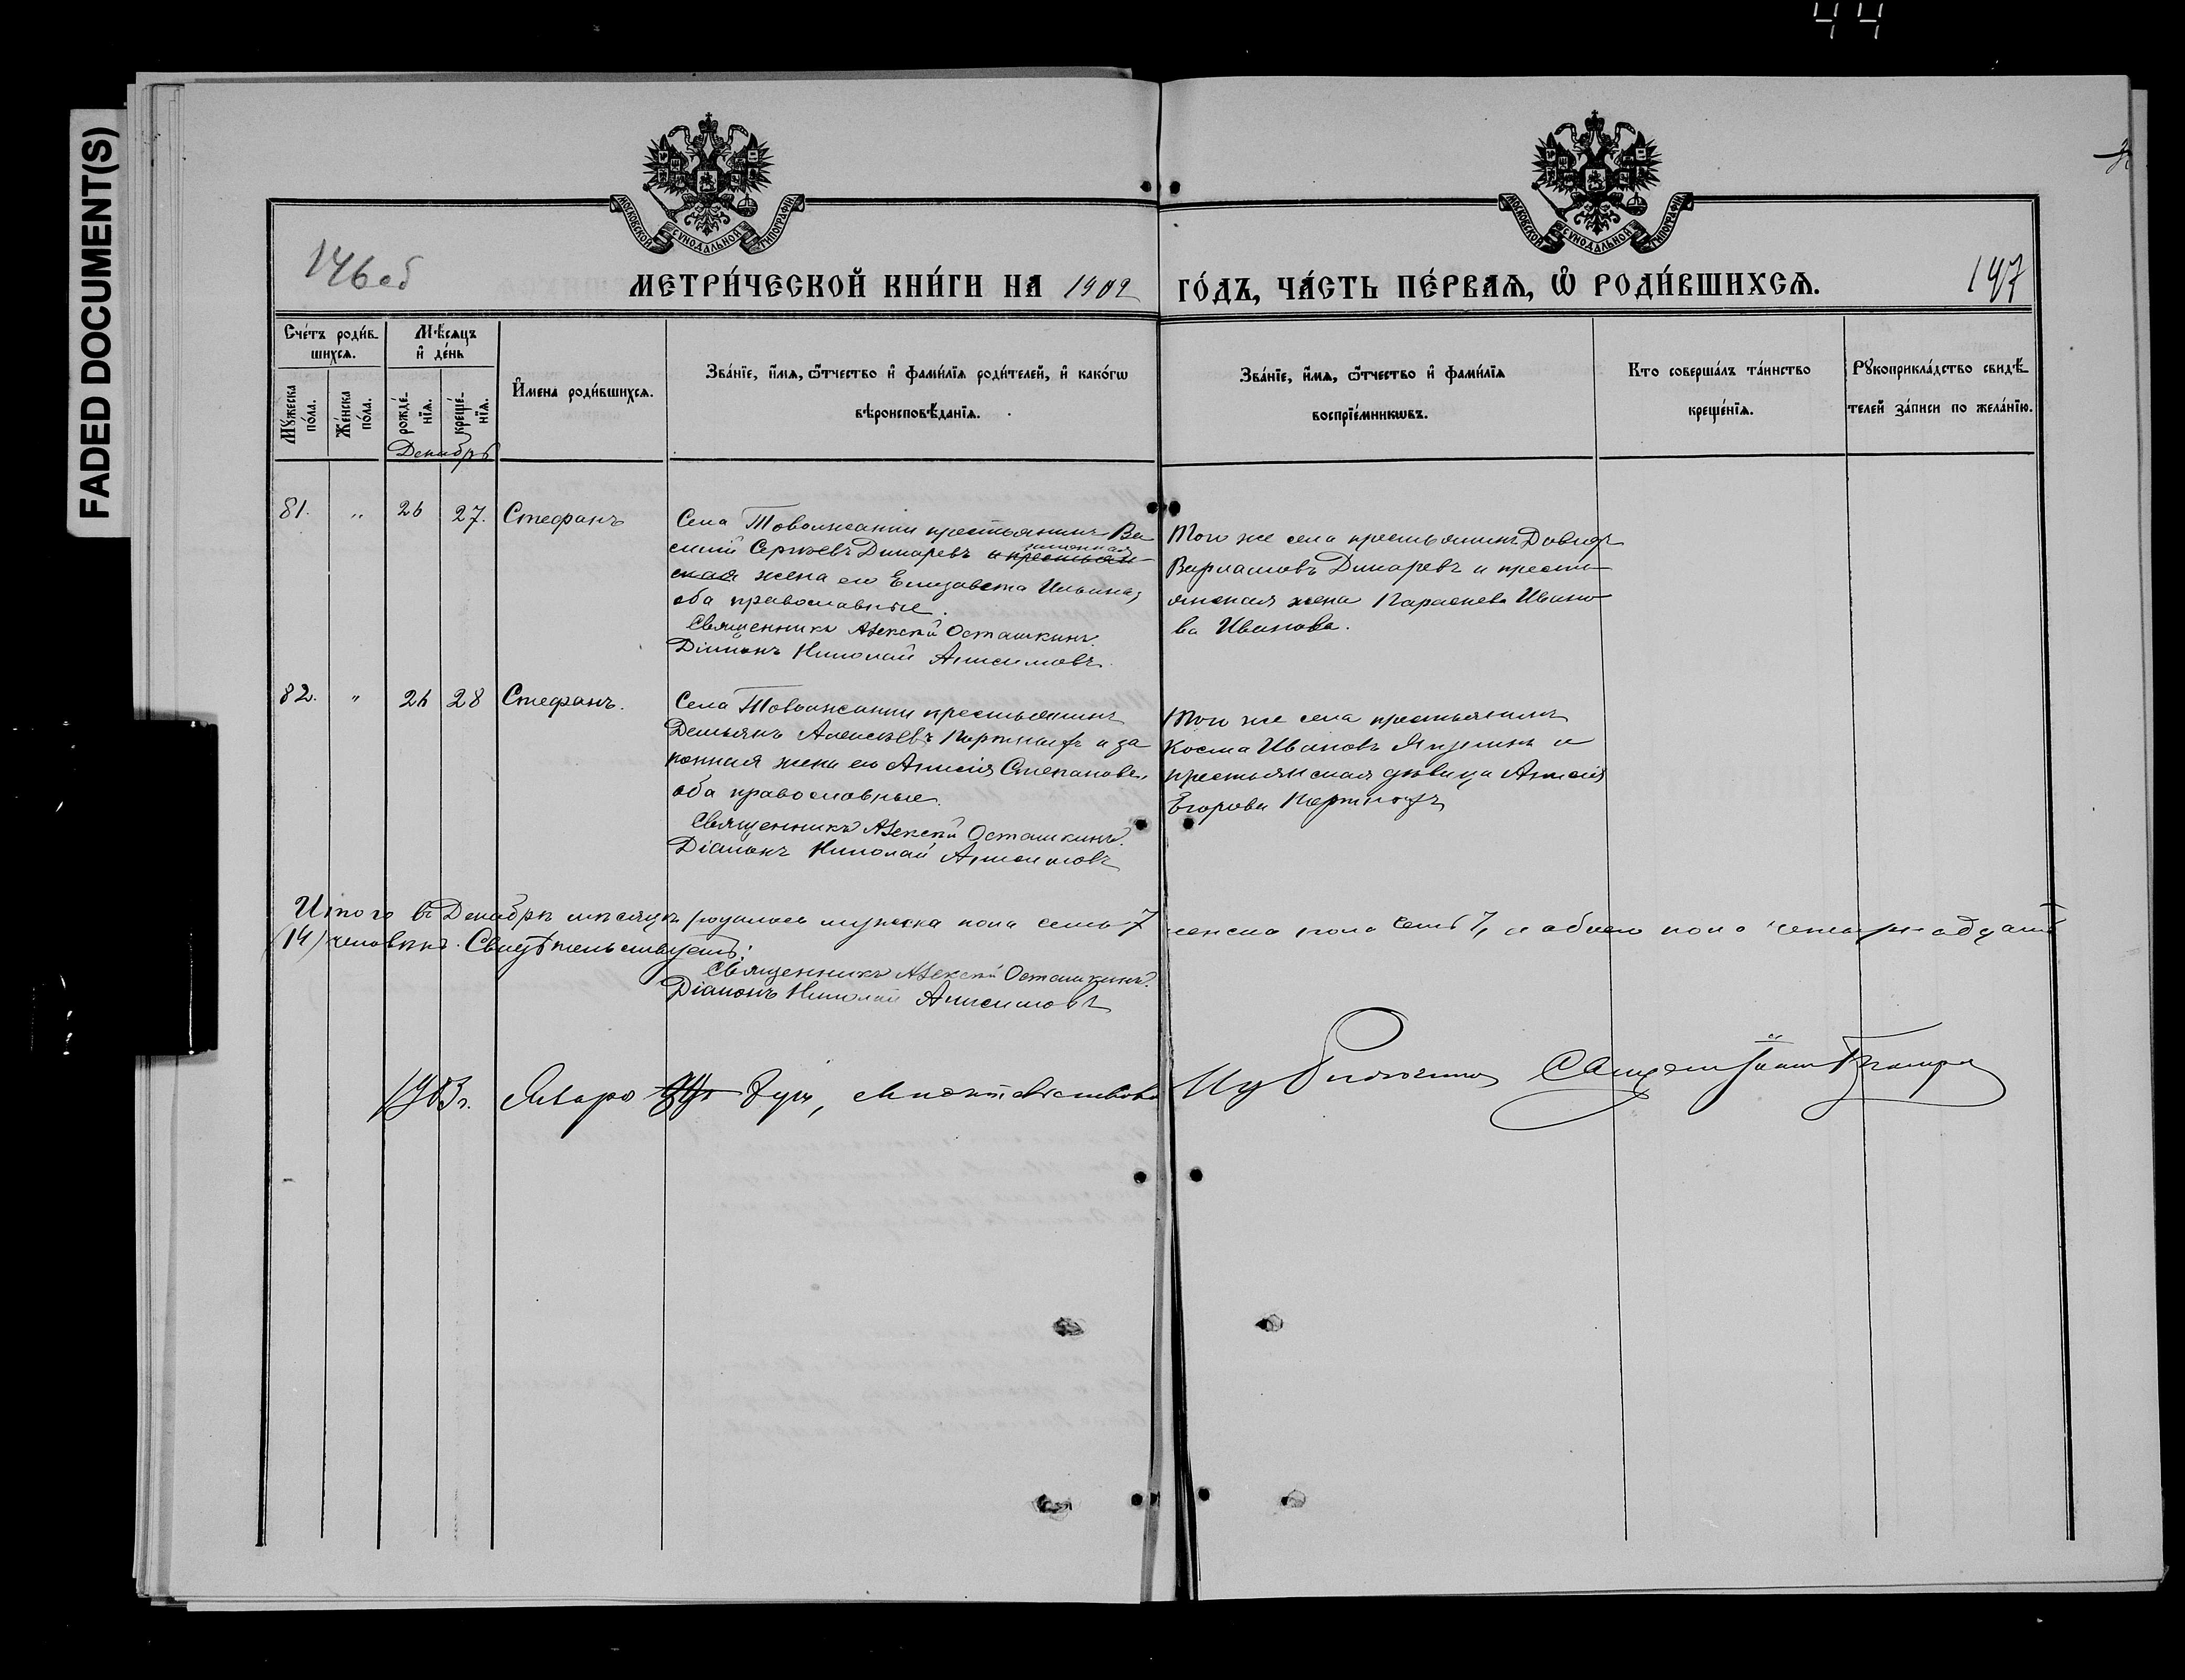 44
FADED DOCUMENT(S)
МОСКОВСКОЙ СѴНОДАЛЬНОЙ ТИПОГРАФІИ
МОСКОВСКОЙ СѴНОДАЛЬНОЙ ТИПОГРАФІИ
146 об
147
МЕТРИ́ЧЕСКОЙ КНИ́ГИ НА 1902 ГО́ДЪ, ЧА́СТЬ ПЕ́РВАѦ, Ѡ҆ РОДИ́ВШИХСѦ.
Сче́тъ роди́в-
шихсѧ.
Мꙋ́жеска по́ла.
Же́нска по́ла.
Мѣ́сѧцъ
и҆ де́нь
рожде́-нїѧ.
креще́-нїѧ.
Декабрь
И҆мена роди́вшихсѧ.
Зва́нїе, и҆́мѧ, ѻ҆́тчество и҆ фами́лїѧ роди́телей, и҆ како́гѡ
вѣроисповѣ́данїѧ.
Зва́нїе, и҆́мѧ, ѻ҆́тчество и҆ фами́лїѧ
воспрїе́мникѡвъ.
Кто соверша́лъ та́инство
креще́нїѧ.
Рꙋкоприкла́дство свидѣ́-
телей за́писи по жела́нїю.
81. " 26 27. Стефанъ
Села Товолжанки крестьянинъ Ва-
силій Сергѣевъ Динаревъ и крестьян- законная
ская жена его Елизавета Ильина,
оба православные.
Священникъ Алексѣй Осташкинъ.
Діаконъ Николай Анисимовъ.
Того же села крестьянинъ Давидъ
Варламовъ Динаревъ и кресть-
янская жена Параскева Ивано-
ва Иванова.
82. " 26 28 Стефанъ.
Села Товолжанки крестьянинъ
Демьянъ Алексѣевъ и за-
конная жена его Анисія Степанова,
оба православные.
Священникъ Алексѣй Осташкинъ.
Діаконъ Николай Анисимовъ
Того же села крестьянинъ
Косма Ивановъ и
крестьянская дѣвица Анисія
Егорова
Итого въ Декабрѣ мѣсяцѣ родилось мужска пола семь 7 женска пола семь 7, а обоего пола четырнадцать
(14) человѣкъ. Свидѣтельствуетъ:
Священникъ Алексѣй Осташкинъ.
Діаконъ Николай Анисимовъ
1903 г. Января дня,